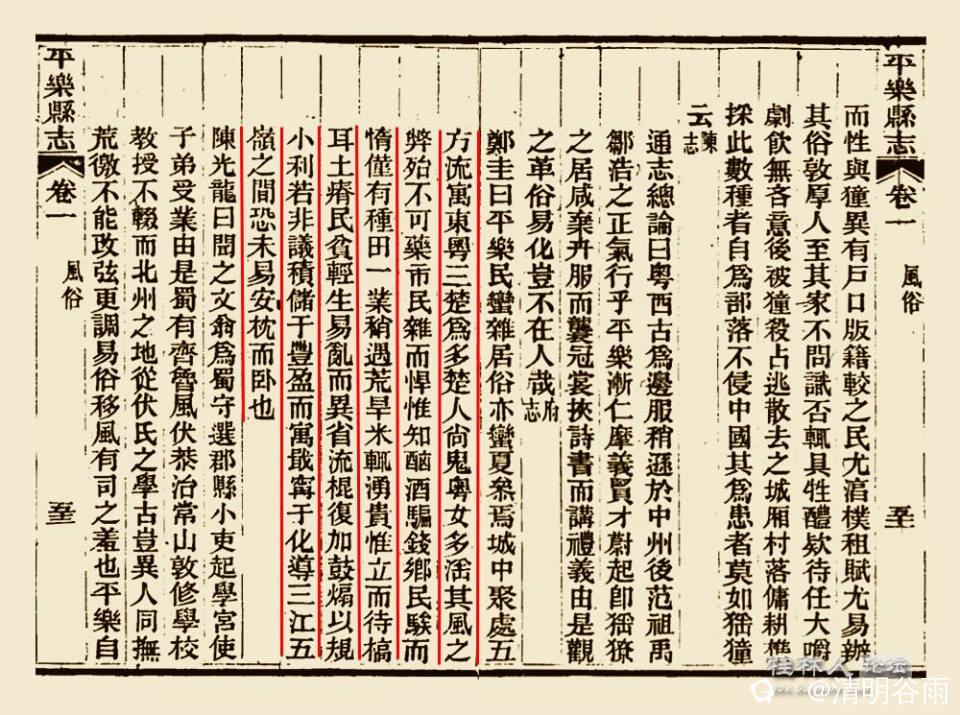 平樂縣志
卷一
風俗
至
而性與獞異有戸口版籍較之民尤湻樸租賦尤易辦
其俗敦厚人至其家不問識否輒具牲醴欵待任大嚼
劇飲無吝意後被獞殺占逃散去之城厢村落傭耕樵
採此數種者自爲部落不侵中國其爲患者莫如猺獞
云陳志
通志總論曰粤西古爲邊服稍遜於中州後范祖禹
鄒浩之正氣行乎平樂漸仁摩義賢才蔚起卽猺獠
之居咸棄卉服而襲冠裳挾詩書而講禮義由是觀
之革俗易化豈不在人哉府志
鄭圭曰平樂民蠻雜居俗亦蠻夏叅焉城中聚處五
方流寓東粤三楚爲多楚人尚鬼粤女多淫其風之
弊殆不可藥市民雜而悍惟知酗酒騙錢鄕民騃而
惰僅有種田一業稍遇荒旱米輒湧貴惟立而待槁
耳土瘠民貧輕生易亂而異省流棍復加鼓煽以規
小利若非議積儲于豐盈而寓戢甯于化導三江五
嶺之間恐未易安枕而卧也
陳光龍曰聞之文翁爲蜀守選郡縣小吏起學宮使
子弟受業由是蜀有齊魯風伏恭治常山敦修學校
教授不輟而北州之地從伏氏之學古豈異人同撫
荒徼不能改弦更調易俗移風有司之羞也平樂自
平樂縣志
卷一
風俗
桂林人论坛
@清明谷雨